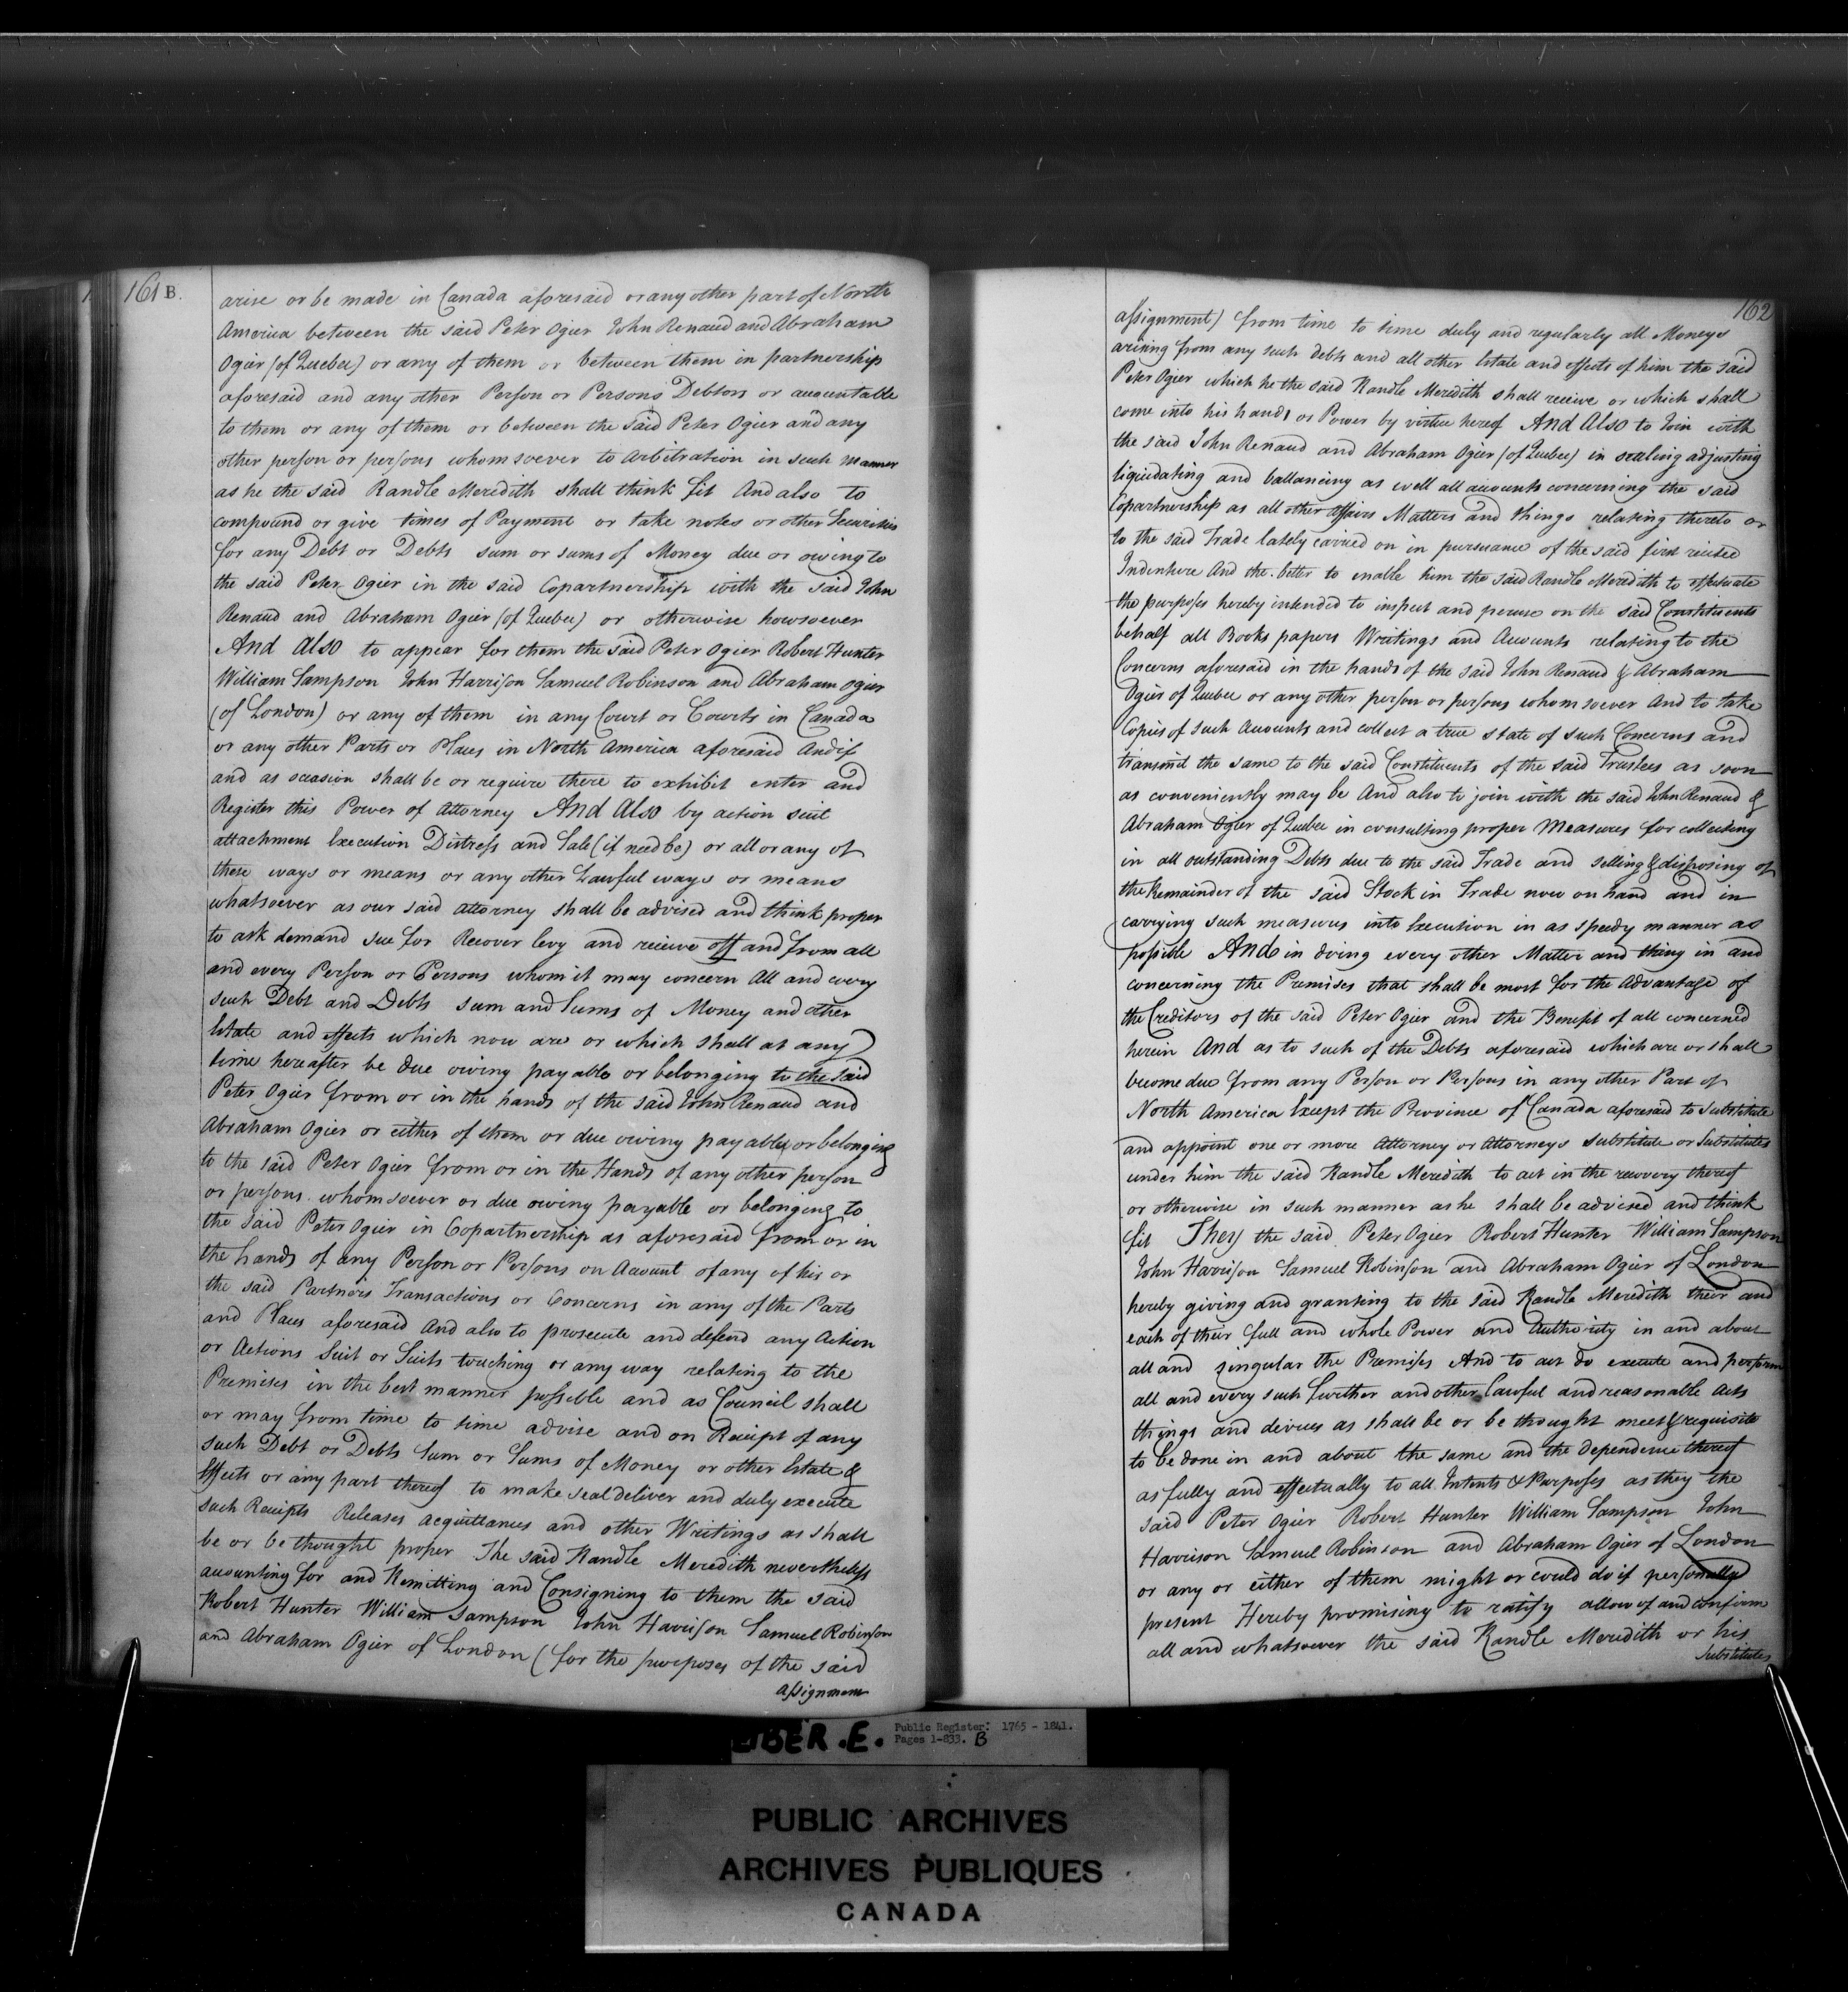 161 B.
arise or be made in Canada aforesaid or any other part of North
America between the said Peter Ogier John Renaud and Abraham
Ogier (of Quebec) or any of them or between them in partnership
aforesaid and any other Person or Persons Debtors or accountable
to them or any of them or between the said Peter Ogier and any
other person or persons whomsoever to Arbitration in such manner
as he the said Randle Meredith shall think fit And also to
compound or give times of Payment or take notes or other Securities
for any Debt or Debts sum or sums of Money due or owing to
the said Peter Ogier in the said Copartnership with the said John
Renaud and Abraham Ogier (of Quebec) or otherwise howsoever
And Also to appear for them the said Peter Ogier Robert Hunter
William Sampson John Harrison Samuel Robinson and Abraham Ogier
(of London) or any of them in any Court or Courts in Canada
or any other Parts or Places in North America aforesaid And if
and as occasion shall be or require there to exhibit enter and
Register this Power of Attorney And Also by action suit
attachment Execution Distress and Sale (if need be) or all or any of
these ways or means or any other Lawful ways or means
whatsoever as our said Attorney shall be advised and think proper
to ask demand sue for Recover levy and receive off and from all
and every Person or Persons whom it may concern All and every
such Debt and Debts sum and Sums of Money and other
Estate and effects which now are or which shall at any
time hereafter be due owing payable or belonging to the said
Peter Ogier from or in the hands of the said John Renaud and
Abraham Ogier or either of them or due owing payable or belonging
to the said Peter Ogier from or in the Hands of any other person
or persons whomsoever or due owing payable or belonging to
the said Peter Ogier in Copartnership as aforesaid from or in
the hands of any Person or Persons on Account of any of his or
the said Partners Transactions or Concerns in any of the Parts
and Places aforesaid And also to prosecute and defend any Action
or Actions Suit or Suits touching or any way relating to the
Premises in the best manner possible and as Council shall
or may from time to time advise and on Receipt of any
such Debt or Debts Sum or Sums of Money or other Estate &
Effects or any part thereof to make seal deliver and duly execute
such Receipts Releases Acquittances and other Writings as shall
be or be thought proper The said Randle Meredith nevertheless
accounting for and Remitting and Consigning to them the said
Robert Hunter William Sampson John Harrison Samuel Robinson
and Abraham Ogier of London (for the purposes of the said
assignment
162
assignment) from time to time duly and regularly all Moneys
arising from any such debts and all other Estate and effects of him the said
Peter Ogier which he the said Randle Meredith shall receive or which shall
come into his hands or Power by virtue hereof And Also to Join with
the said John Renaud and Abraham Ogier (of Quebec) in settling adjusting
liquidating and ballancing as well all accounts concerning the said
Copartnership as all other affairs Matters and things relating thereto or
to the said Trade lately carried on in pursuance of the said first recited
Indenture And the better to enable him the said Randle Meredith to effectuate
the purposes hereby intended to inspect and peruse on the said Constituents
behalf all Books papers Writings and Accounts relating to the
Concerns aforesaid in the hands of the said John Renaud & Abraham
Ogier of Quebec or any other person or persons whomsoever And to take
Copies of such Accounts and collect a true state of such Concerns and
transmit the same to the said Constituents of the said Trustees as soon
as conveniently may be And also to join with the said John Renaud &
Abraham Ogier of Quebec in consulting proper Measures for collecting
in all outstanding Debts due to the said Trade and selling & disposing of
the Remainder of the said Stock in Trade now on hand and in
carrying such measures into Execution in as speedy manner as
possible And in doing every other Matter and thing in and
concerning the Premises that shall be most for the Advantage of
the Creditors of the said Peter Ogier and the Benefit of all concerned
herein And as to such of the Debts aforesaid which are or shall
become due from any Person or Persons in any other Part of
North America Except the Province of Canada aforesaid to Substitute
and appoint one or more Attorney or Attorneys substitute or Substitutes
under him the said Randle Meredith to act in the recovery thereof
or otherwise in such manner as he shall be advised and think
fit They the said Peter Ogier Robert Hunter William Sampson
John Harrison Samuel Robinson and Abraham Ogier of London
hereby giving and granting to the said Randle Meredith their and
each of their full and whole Power and Authority in and about
all and singular the Premises And to act do execute and perform
all and every such further and other Lawful and reasonable Acts
things and devices as shall be or be thought meet & requisite
to be done in and about the same and the dependence thereof
as fully and effectually to all Intents & Purposes as they the
said Peter Ogier Robert Hunter William Sampson John
Harrison Samuel Robinson and Abraham Ogier of London
or any or either of them might or could do if personally
present Hereby promising to ratify allow of and confirm
all and whatsoever the said Randle Meredith or his
Substitutes
LIBER .E. Public Register: 1765 - 1841.
Pages 1-833. B
PUBLIC ARCHIVES
ARCHIVES PUBLIQUES
CANADA